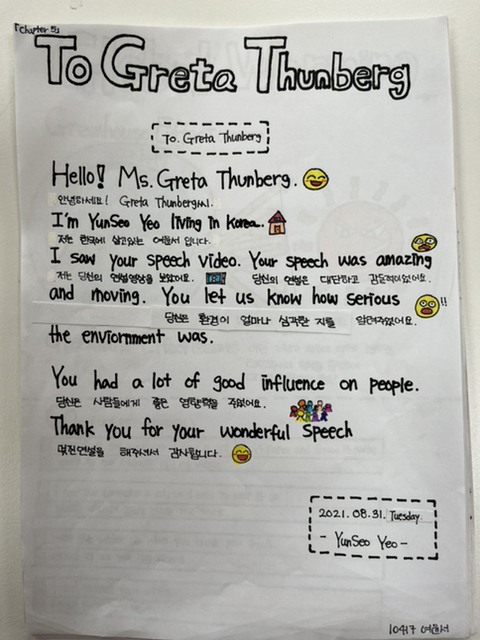 「Chapter 5」
To Greta Thunberg
To. Greta Thunberg
Hello! Ms. Greta Thunberg.
안녕하세요! Greta Thunberg씨.
I'm YunSeo Yeo living in Korea..
저는 한국에 살고있는 여윤서 입니다.
I saw your speech video. Your speech was amazing
저는 당신의 연설영상을 보았어요. 당신의 연설은 대단하고 감동적이었어요.
and moving. You let us know how serious
당신은 환경이 얼마나 심각한 지를 알려주었어요.
the enviornment was.
You had a lot of good influence on people.
당신은 사람들에게 좋은 영향력을 주었어요.
Thank you for your wonderful speech
멋진연설을 해주셔서 감사합니다.
2021. 08. 31. Tuesday.
- YunSeo Yeo -
10417 여윤서